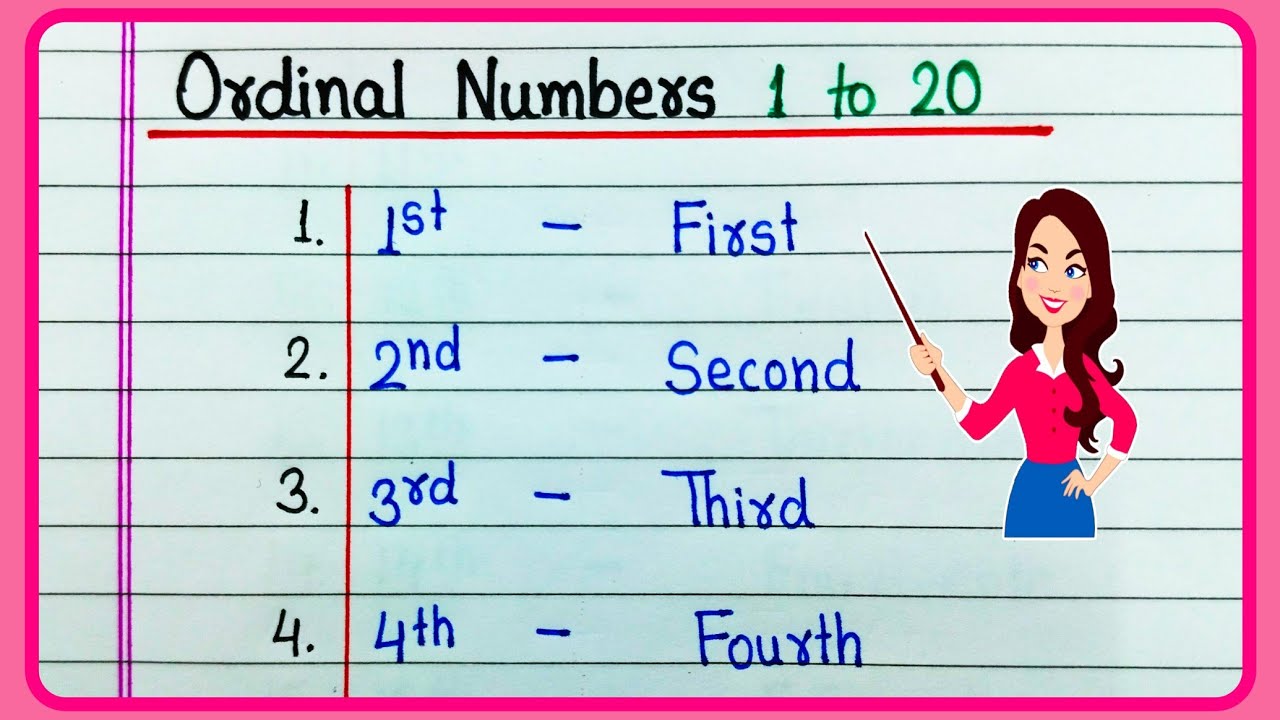 Ordinal Numbers 1 to 20
1. 1st - First
2. 2nd - Second
3. 3rd - Third
4. 4th - Fourth